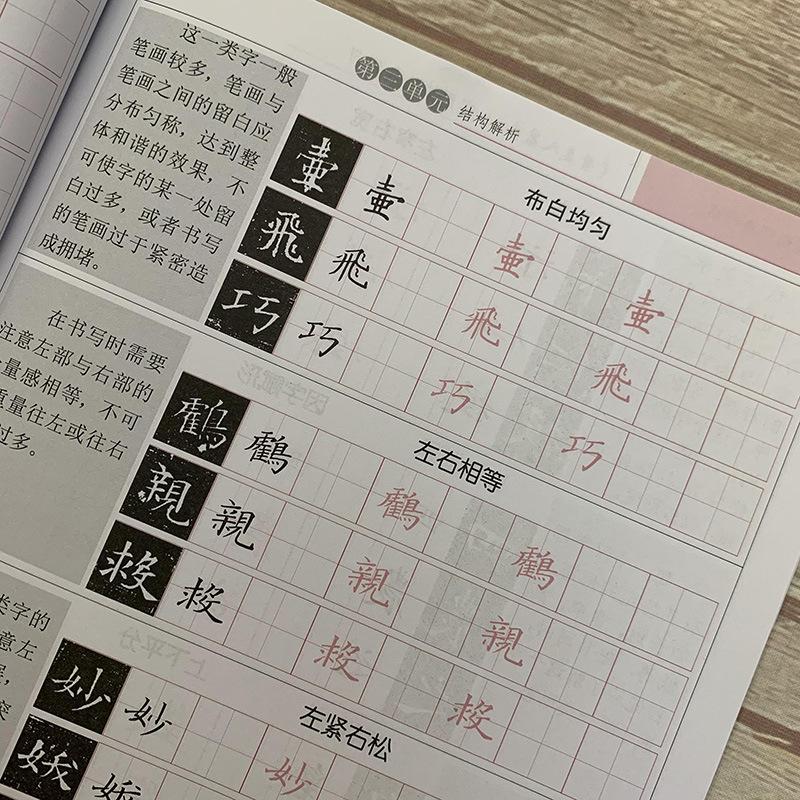 第三单元
结构解析
这一类字一般
笔画较多，笔画与
笔画之间的留白应
分布匀称，达到整
体和谐的效果，不
可使字的某一处留
白过多，或者书写
的笔画过于紧密造
成拥堵。
布白均匀
壷 壷 壷 壷
飛 飛 飛 飛
巧 巧 巧 巧
在书写时需要
注意左部与右部的
量感相等，不可
重量往左或往右
过多。
左右相等
鸖 鸖 鸖 鸖
親 親 親 親
类字的
意左
左紧右松
妙 妙 妙